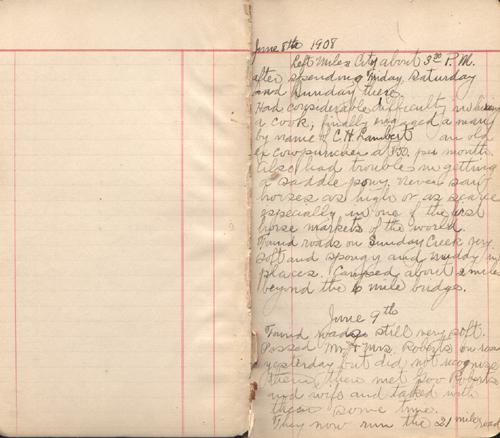 June 8th 1908
Left Miles City about 3 30 P.M.
after spending Friday, Saturday
and Sunday there.
Had considerable difficulty in hiring
a cook, finally engaged a man
by name of C.H. Lambert an old
ex cowpuncher at $50. per month.
Also had trouble in getting
a saddle pony. Never saw
horses as high or as scarce
especially in one of the best
horse markets of the world.
Found roads on Sunday Creek very
soft and spongy and muddy in
places. Camped about 2 miles
beyond the 6 mile bridges.
June 9th
Found roads still very soft.
Passed Mr. & Mrs. Roberts on road
yesterday but did not recognize
them, then met Gov Roberts
and wife and talked with
them some time.
They now run the 21 mile road